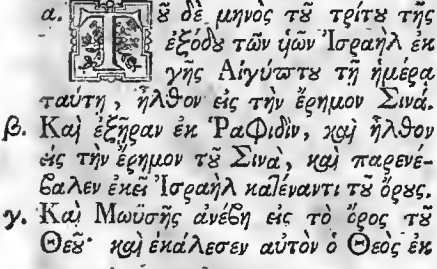 α. Τȣ͂ δὲ μηνὸς τȣ͂ τρίτȣ τῆς
ἐξόδȣ τῶν ὑῶν Ἰσραὴλ ἐκ
γῆς Αἰγύπτȣ τῇ ἡμέρα
ταύτῃ, ἦλθον εἰς τὴν ἔρημον Σινά.
β. Καὶ ἐξῆραν ἐκ Ῥαφιδὶν, καὶ ἦλθον
εἰς τὴν ἔρημον τȣ͂ Σινὰ, καὶ παρενέ-
βαλεν ἐκεῖ Ἰσραὴλ κατέναντι τȣ͂ ὄρȣς.
γ. Καὶ Μωϋσῆς ἀνέβη εἰς τὸ ὄρος τȣ͂
Θεȣ͂· καὶ ἐκάλεσεν αὐτὸν ὁ Θεὸς ἐκ